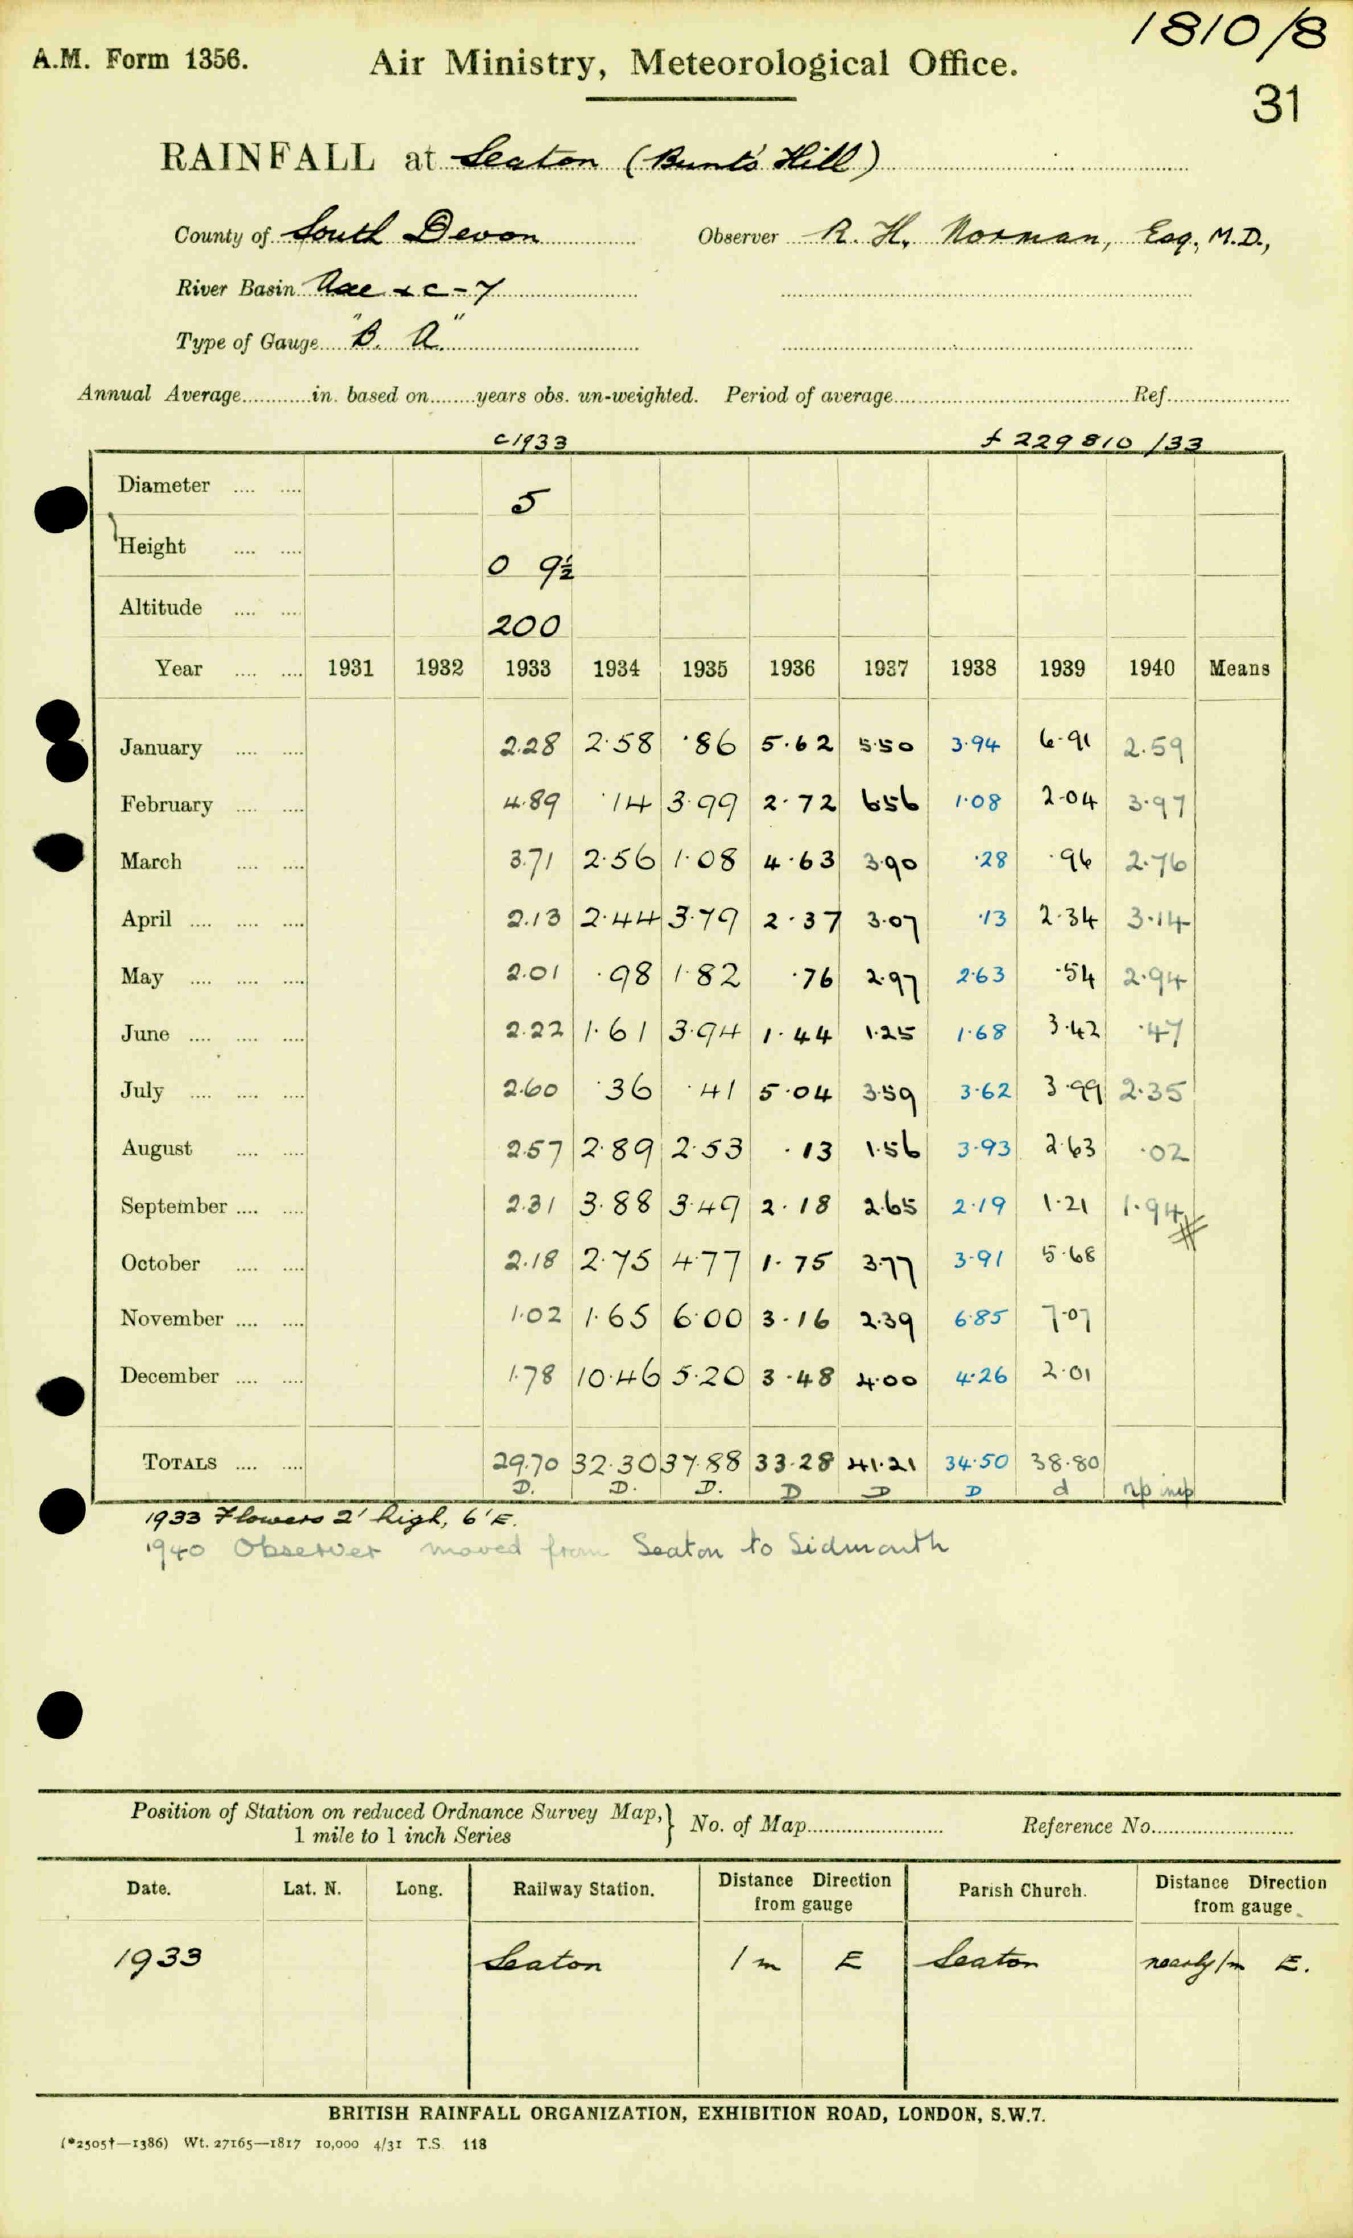 1810/8
A.M. Form 1356. Air Ministry, Meteorological Office.
31
RAINFALL at Seaton (Bunt's Hill)
County of South Devon Observer R. H. Norman, Esq., M.D.,
River Basin Axe & c-7
Type of Gauge "B. A."
Annual Average............in. based on........years obs. un-weighted. Period of average..........Ref..........
c1933 f 229810 /33
Diameter .... .... 5
Height .... .... 0 9½
Altitude .... .... 200
Year .... .... 1931 1932 1933 1934 1935 1936 1937 1938 1939 1940 Means
January .... .... 2.28 2.58 .86 5.62 5.50 3.94 6.91 2.59
February .... .... 4.89 .14 3.99 2.72 6.56 1.08 2.04 3.97
March .... .... 3.71 2.56 1.08 4.63 3.90 .28 .96 2.76
April .... .... .... 2.13 2.44 3.79 2.37 3.07 .13 2.34 3.14
May .... .... .... 2.01 .98 1.82 .76 2.97 2.63 .54 2.94
June .... .... .... 2.22 1.61 3.94 1.44 1.25 1.68 3.42 .47
July .... .... .... 2.60 .36 .41 5.04 3.59 3.62 3.99 2.35
August .... .... 2.57 2.89 2.53 .13 1.56 3.93 2.63 .02
September .... .... 2.31 3.88 3.49 2.18 2.65 2.19 1.21 1.94
October .... .... 2.18 2.75 4.77 1.75 3.77 3.91 5.68
November .... .... 1.02 1.65 6.00 3.16 2.39 6.85 7.07
December .... .... 1.78 10.46 5.20 3.48 4.00 4.26 2.01
TOTALS .... .... 29.70 32.30 37.88 33.28 41.21 34.50 38.80
D. D. D. D D D d
1933 Flowers 2' high, 6' E.
1940 Observer moved from Seaton to Sidmouth
Position of Station on reduced Ordnance Survey Map, } No. of Map.......... Reference No..........
1 mile to 1 inch Series
Date. Lat. N. Long. Railway Station. Distance Direction from gauge Parish Church. Distance Direction from gauge
1933 Seaton 1 m E Seaton nearly 1m E.
BRITISH RAINFALL ORGANIZATION, EXHIBITION ROAD, LONDON, S.W.7.
(*2505†—1386) Wt. 27165—1817 10,000 4/31 T.S. 118